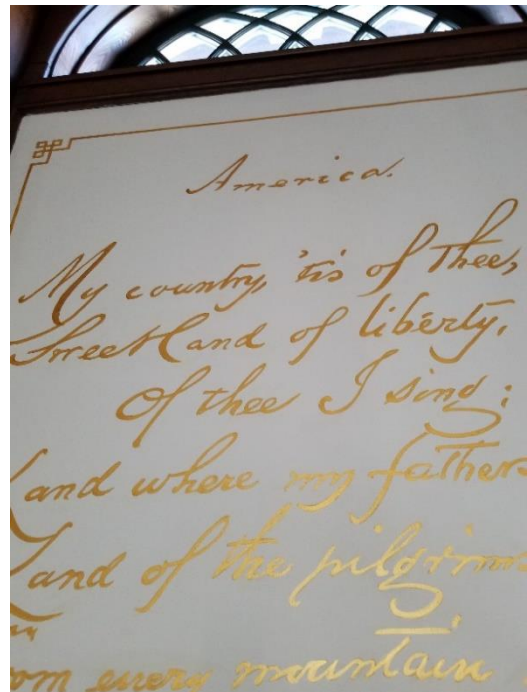 America.
My country, 'tis of thee,
Sweet land of liberty,
Of thee I sing;
Land where my fathers
Land of the pilgrims
om every mountain